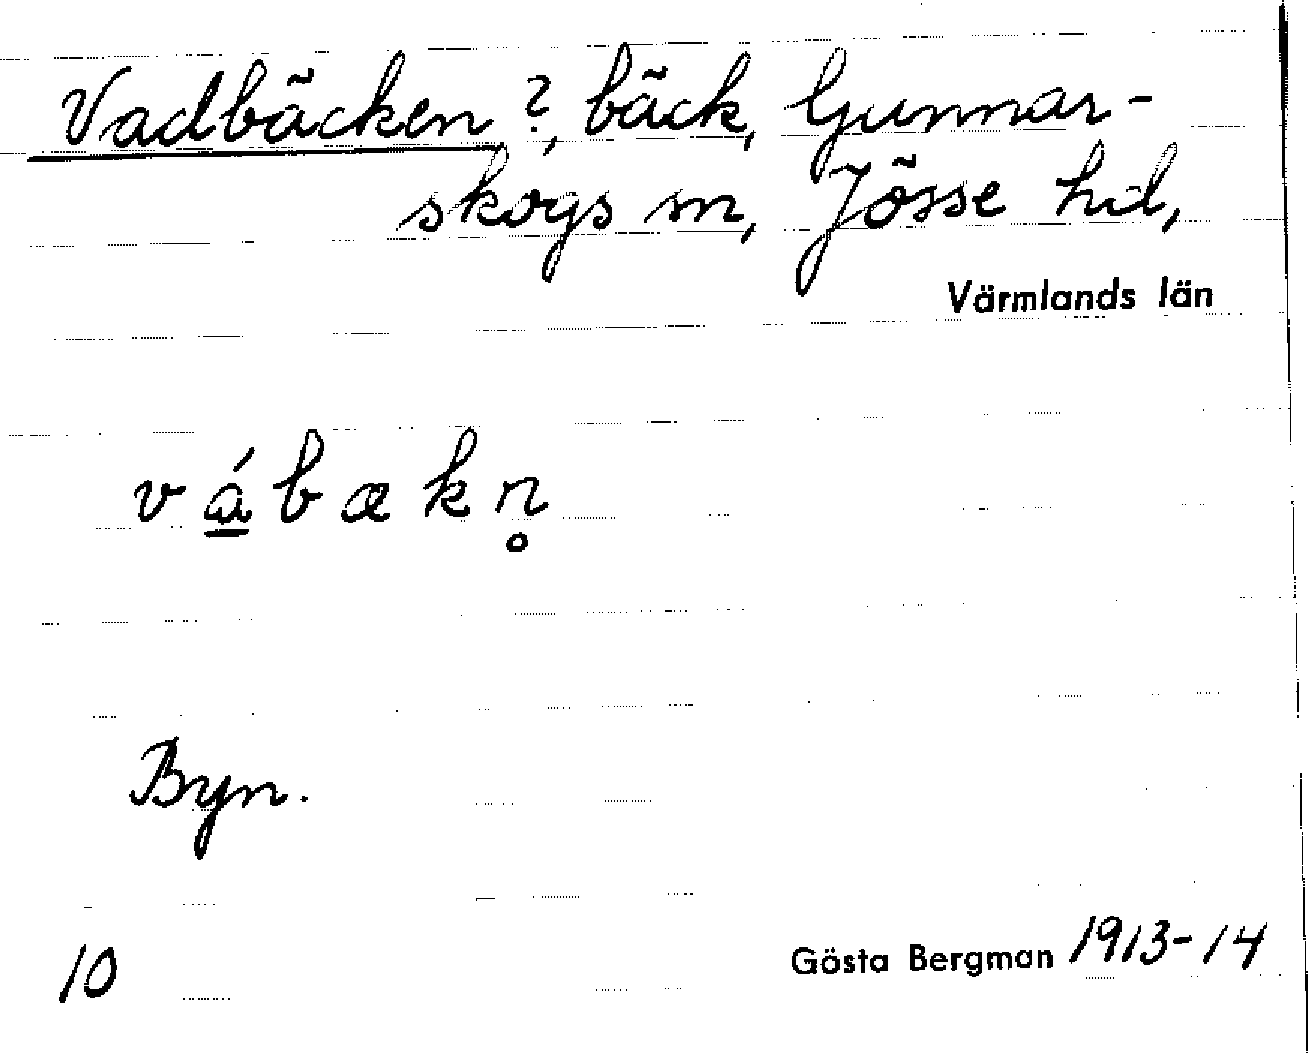 Vadbäcken?, bäck, Gunnar-
skogs sn, Jösse hd,
Värmlands län
v á̲ b æ k n̥
Byn.
10 Gösta Bergman 1913-14